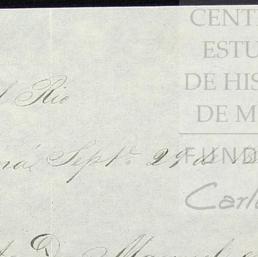 CENT
ESTU
DE HIS
DE M
FUND
Carl
l Rio
ná, Sept. 29 de
Manuel